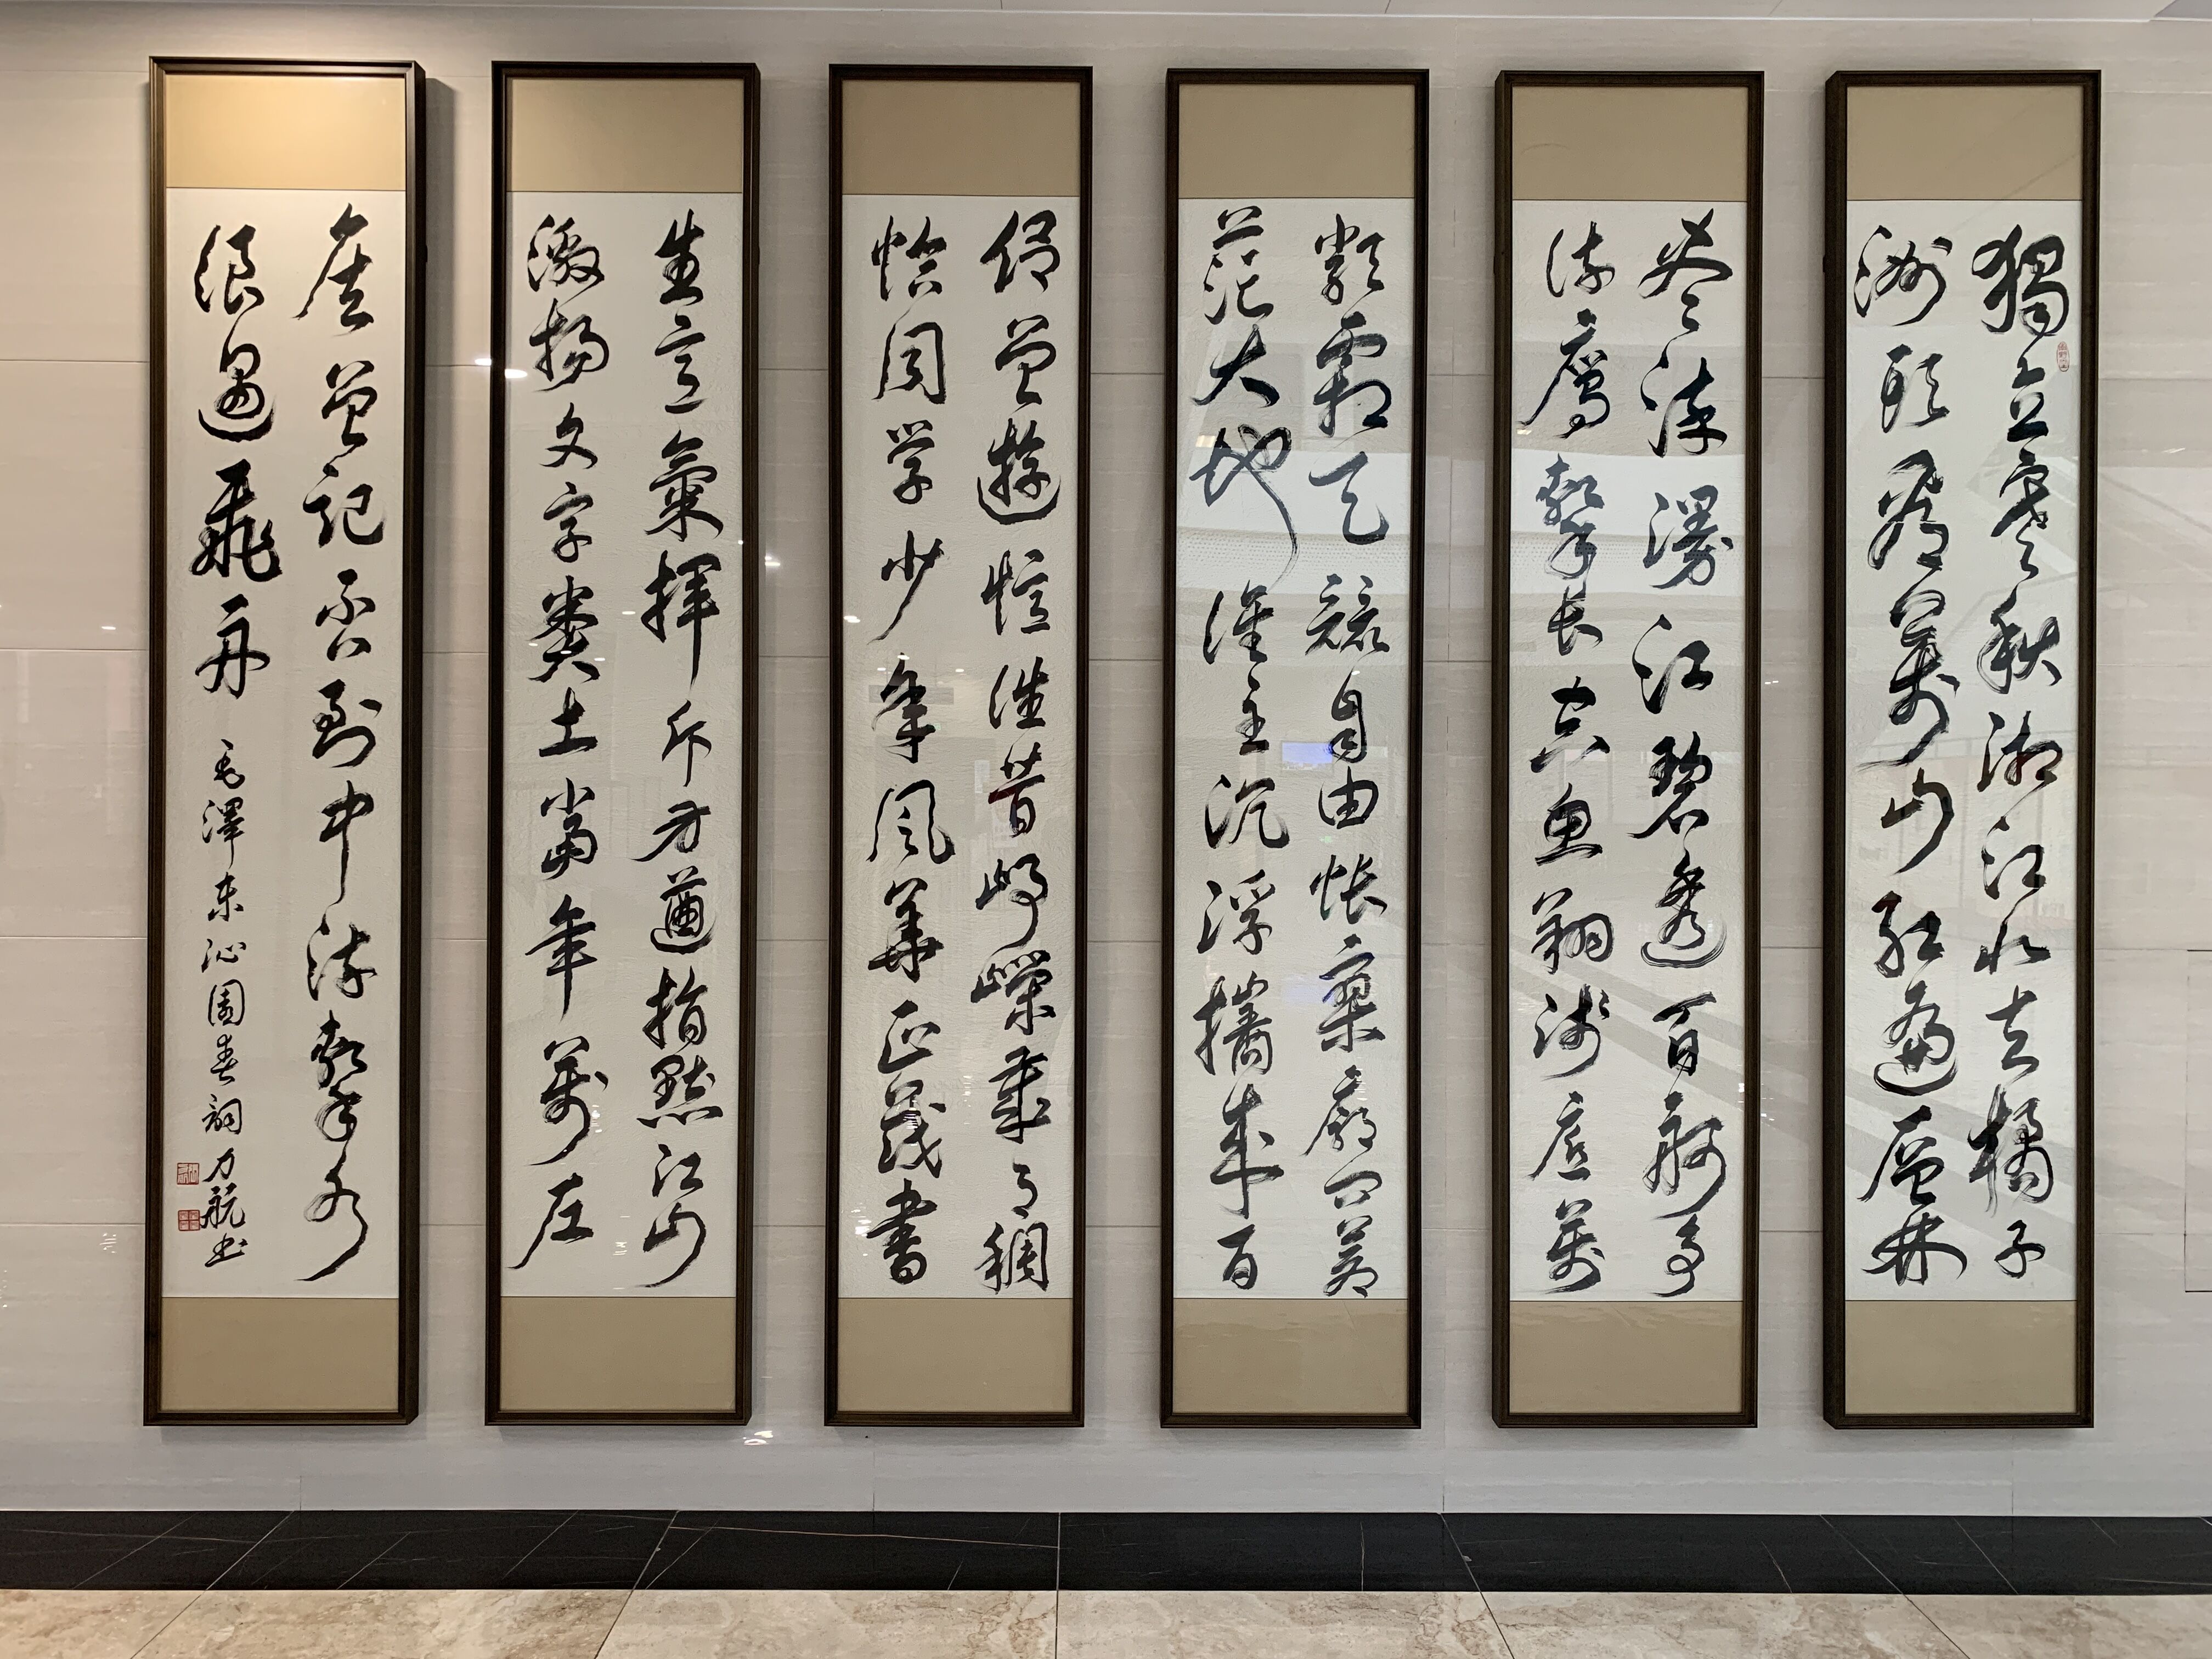 獨立寒秋湘江北去橘子
洲頭看萬山紅遍層林
盡染漫江碧透百舸爭
流鷹擊长空魚翔淺底萬
類霜天競自由悵寥廓問蒼
茫大地誰主沉浮攜來百
侣曾遊憶往昔崢嶸歲月稠
恰同学少年風華正茂書
生意氣揮斥方遒指點江山
激揚文字糞土當年萬户
侯曾記否到中流擊水
浪遏飛舟 毛澤東沁園春詞 力航书